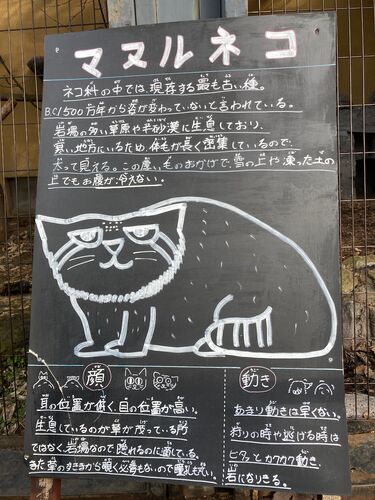 マヌルネコ
ネコ科の中では、現存する最も古い種。
B.C1500万年から姿が変わっていないと言われている。
岩場の多い草原や半砂漠に生息しており、
寒い地方にいるため、体毛が長く密集しているので、
太って見える。この厚い毛のおかげで、雪の上や凍った土の
上でもお腹が冷えない。
顔
耳の位置が低く、目の位置が高い。
生息しているのが草が茂っている所
ではなく岩場なので隠れるのに適している。
また葉のすきまから覗く必要もないので瞳孔も丸い。
動き
あまり動きは早くない。
狩りの時や逃げる時は
ピタッとカクカク動き、
岩になりきる。